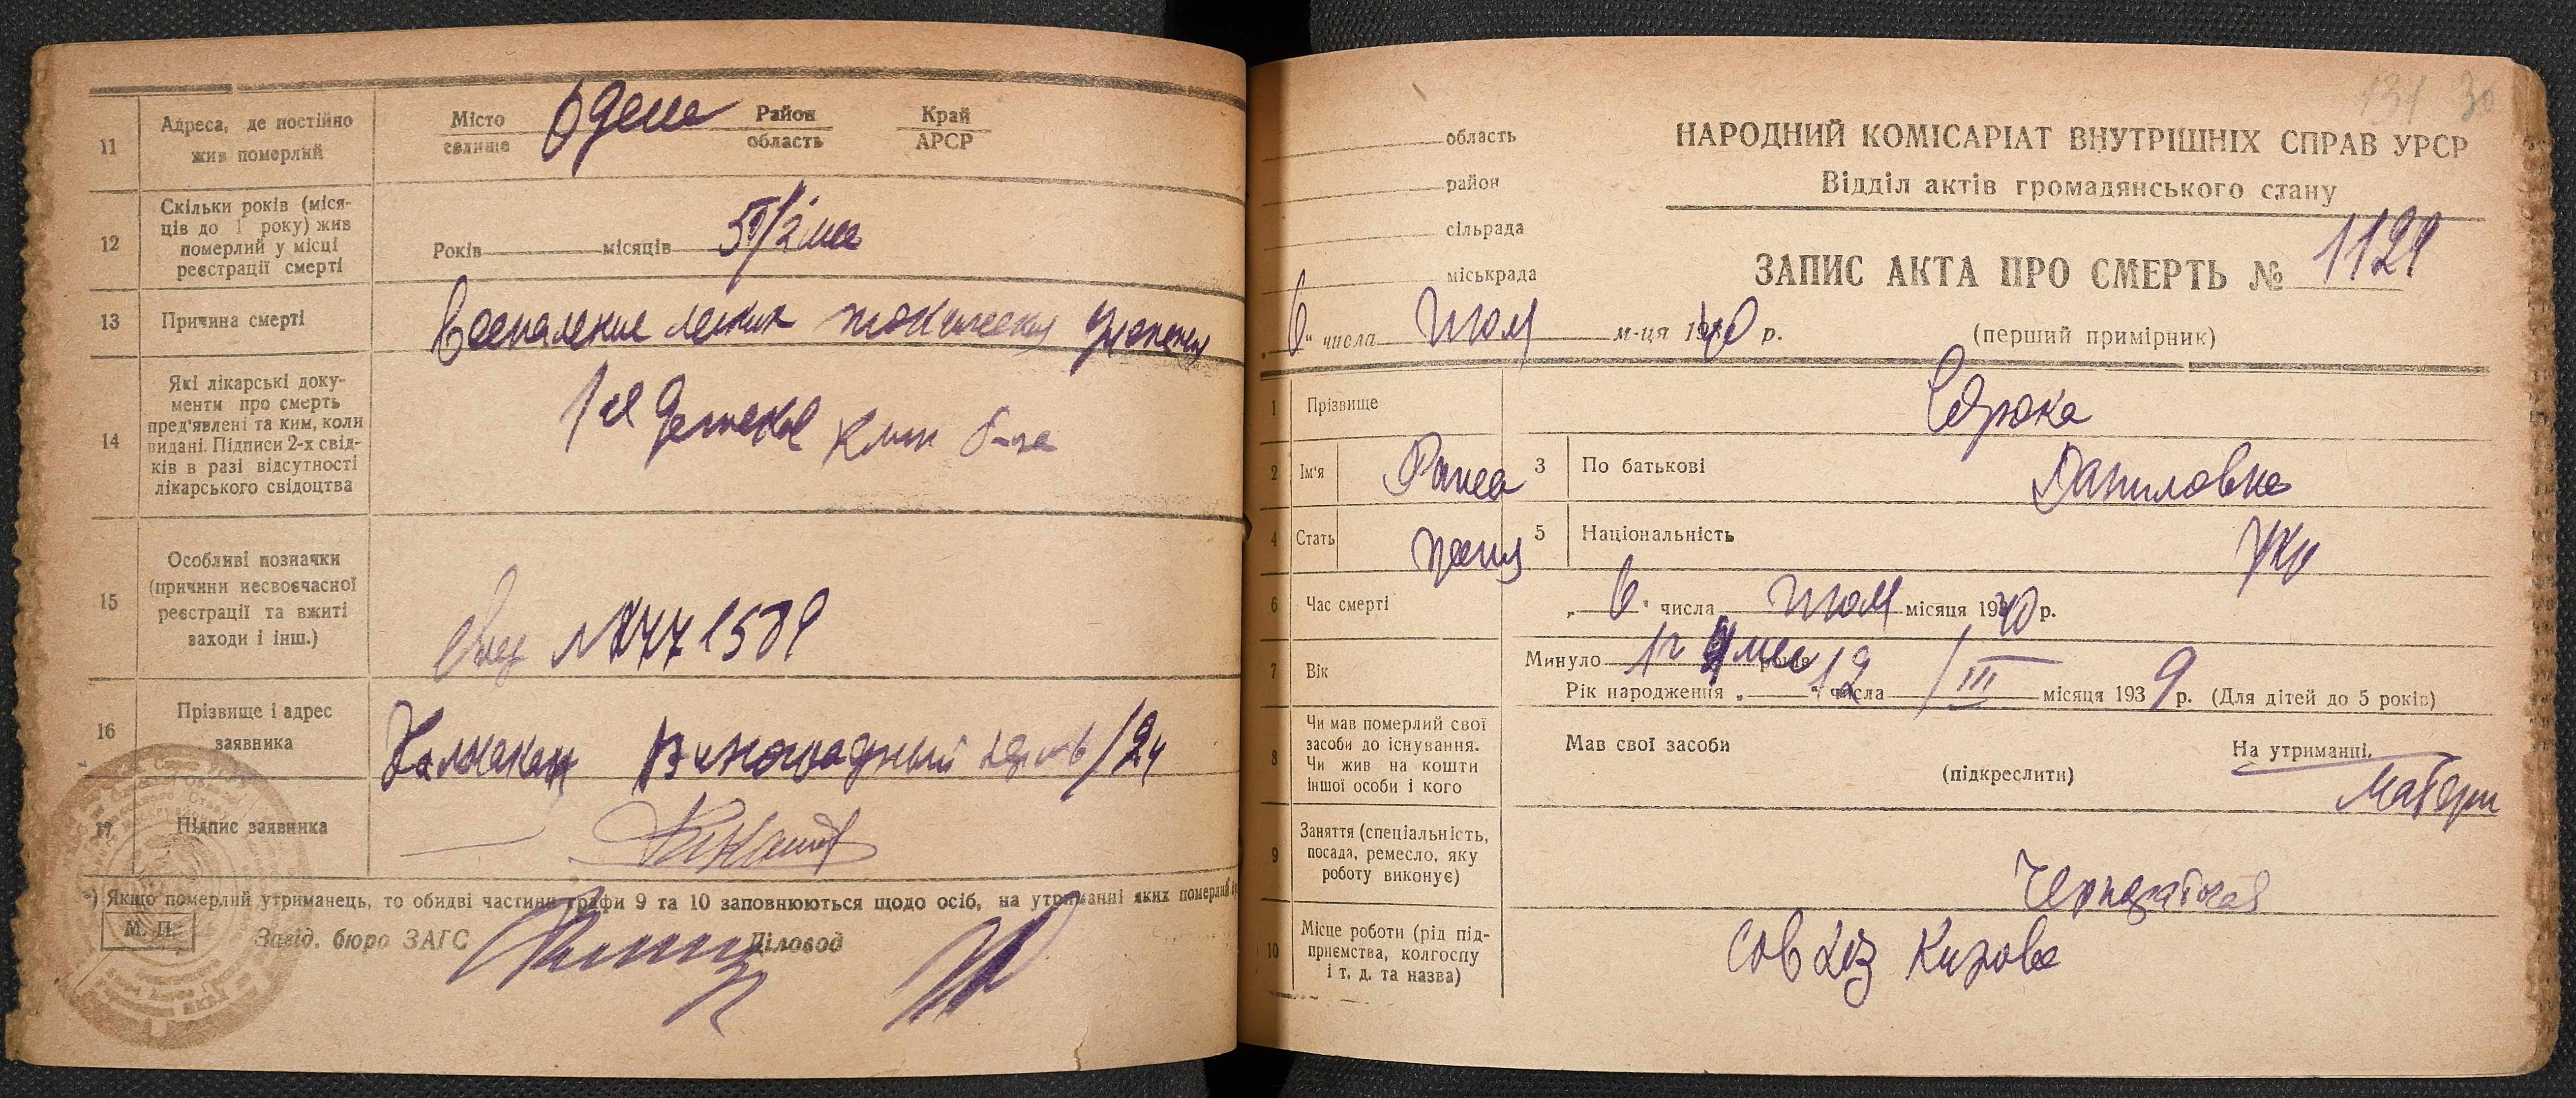 11
Адреса, де постійно
жив померлий
Місто
селище
Одесса
Район
область
Край
АРСР
12
Скільки років (міся-
ців до 1 року) жив
померлий у місці
реєстрації смерті
Років місяців 5 1/2 мес
13
Причина смерті
Воспаление легких токсическая
14
Які лікарські доку-
менти про смерть
пред'явлені та ким, коли
видані. Підписи 2-х свід-
ків в разі відсутності
лікарського свідоцтва
1ая детская клин б-ца
15
Особливі позначки
(причини несвоєчасної
реєстрації та вжиті
заходи і інш.)
16
Прізвище і адрес
заявника
Виноградный
17
Підпис заявника
*) Якщо померлий утриманець, то обидві частини графи 9 та 10 заповнюються щодо осіб, на утриманні яких померлий
М. П.
Завід. бюро ЗАГС
Діловод
131 30
область
район
сільрада
міськрада
НАРОДНИЙ КОМІСАРІАТ ВНУТРІШНІХ СПРАВ УРСР
Відділ актів громадянського стану
ЗАПИС АКТА ПРО СМЕРТЬ № 1129
„6" числа июля м-ця 1940 р.
(перший примірник)
1 Прізвище
2 Ім'я Раиса 3 По батькові Даниловна
4 Стать 5 Національність Укр
6 Час смерті „6" числа июля місяця 1940 р.
7 Вік
Минуло 1г 4 мес років
Рік народження „12" числа III місяця 1939 р. (Для дітей до 5 років)
8
Чи мав померлий свої
засоби до існування.
Чи жив на кошти
іншої особи і кого
Мав свої засоби
(підкреслити)
На утриманці.
матери
9
Заняття (спеціальність,
посада, ремесло, яку
роботу виконує)
Чернорабочая
10
Місце роботи (рід під-
приємства, колгоспу
і т. д. та назва)
Совхоз Кирова